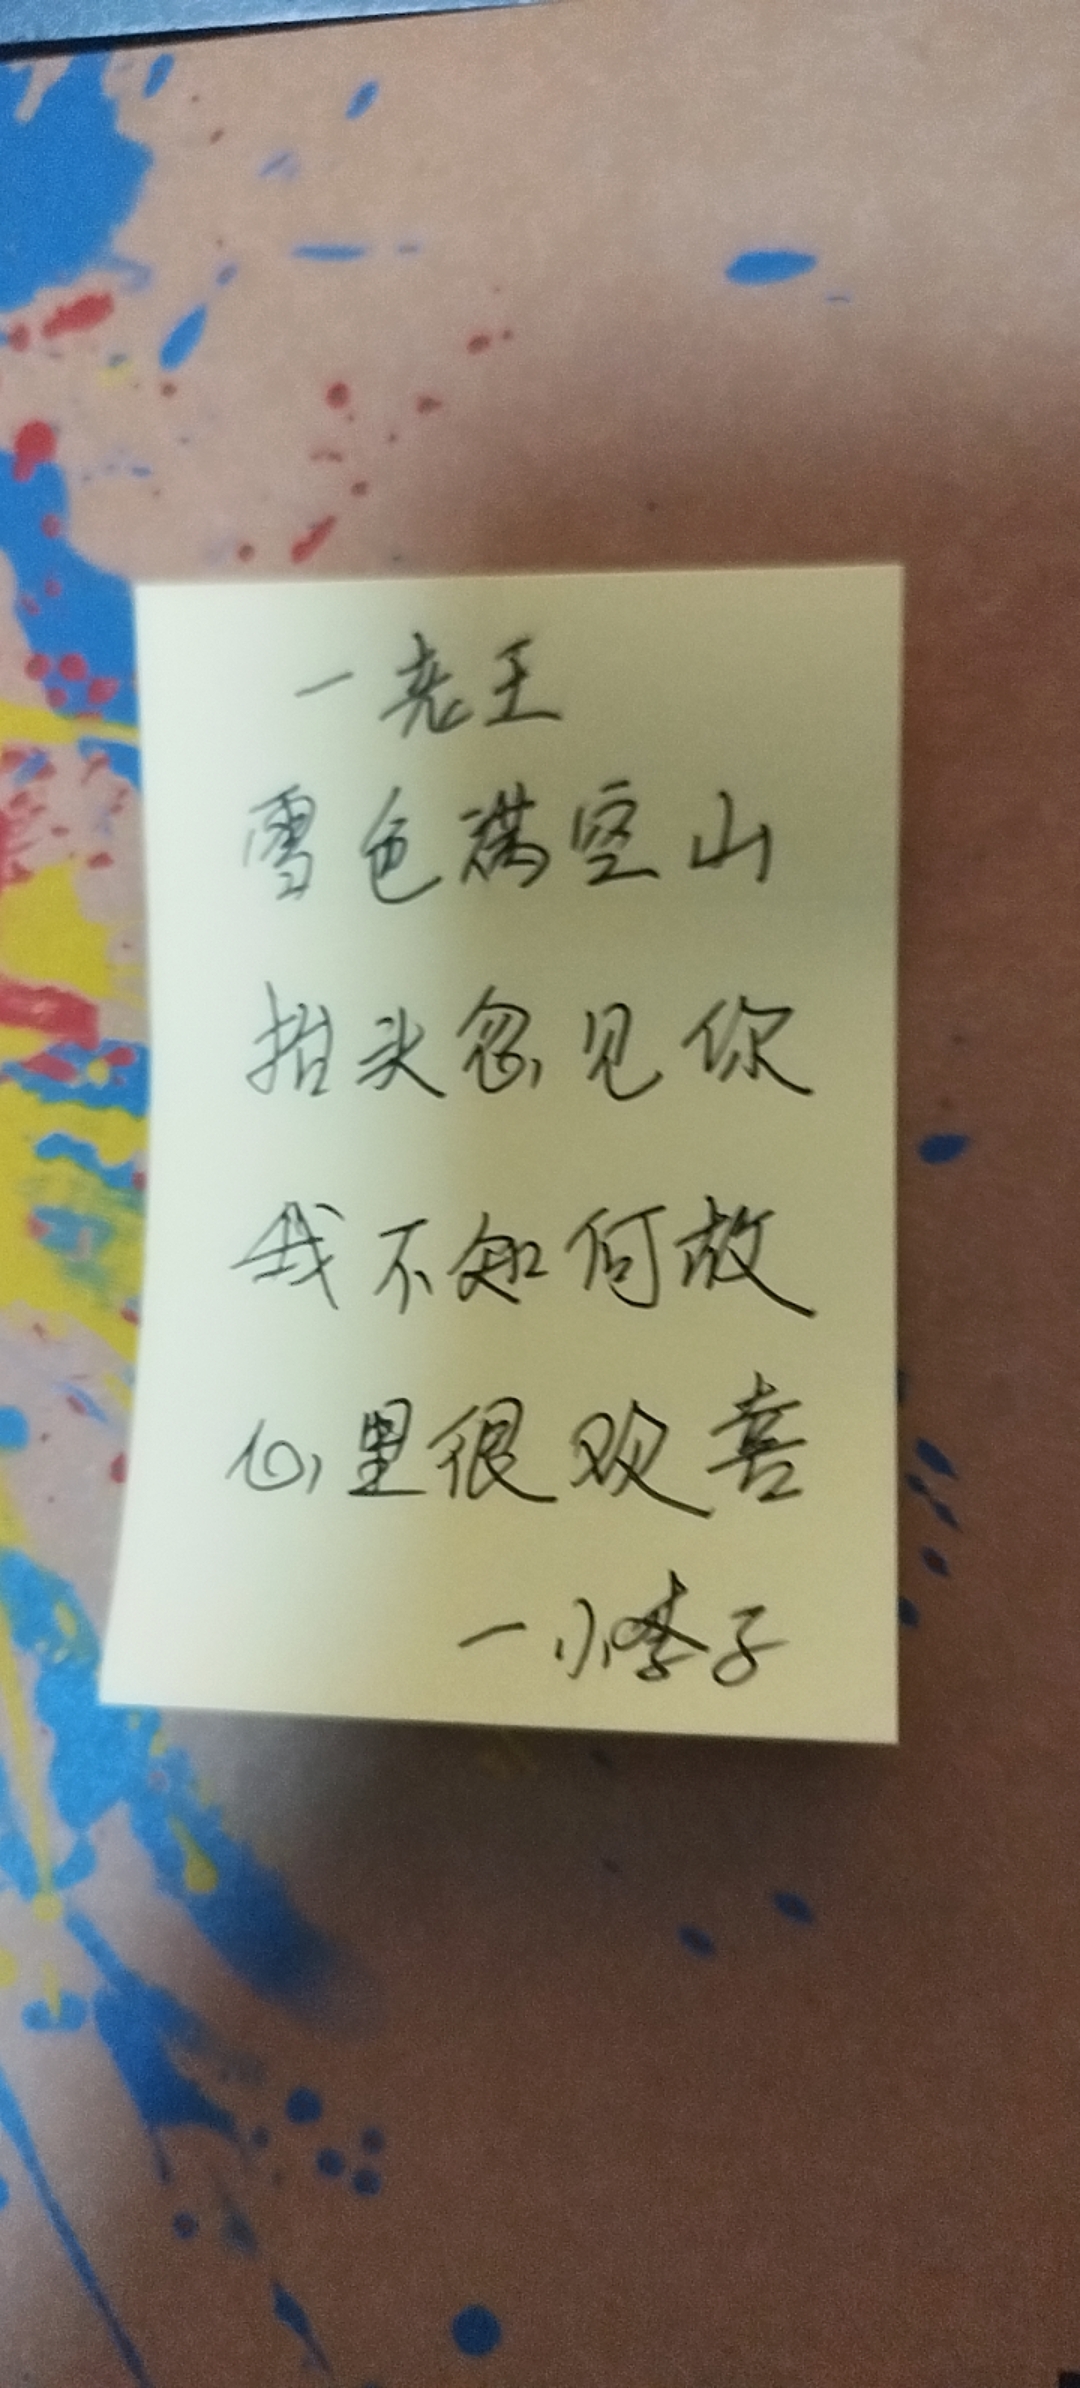 一老王
雪色满空山
抬头忽见你
我不知何故
心里很欢喜
一小李子